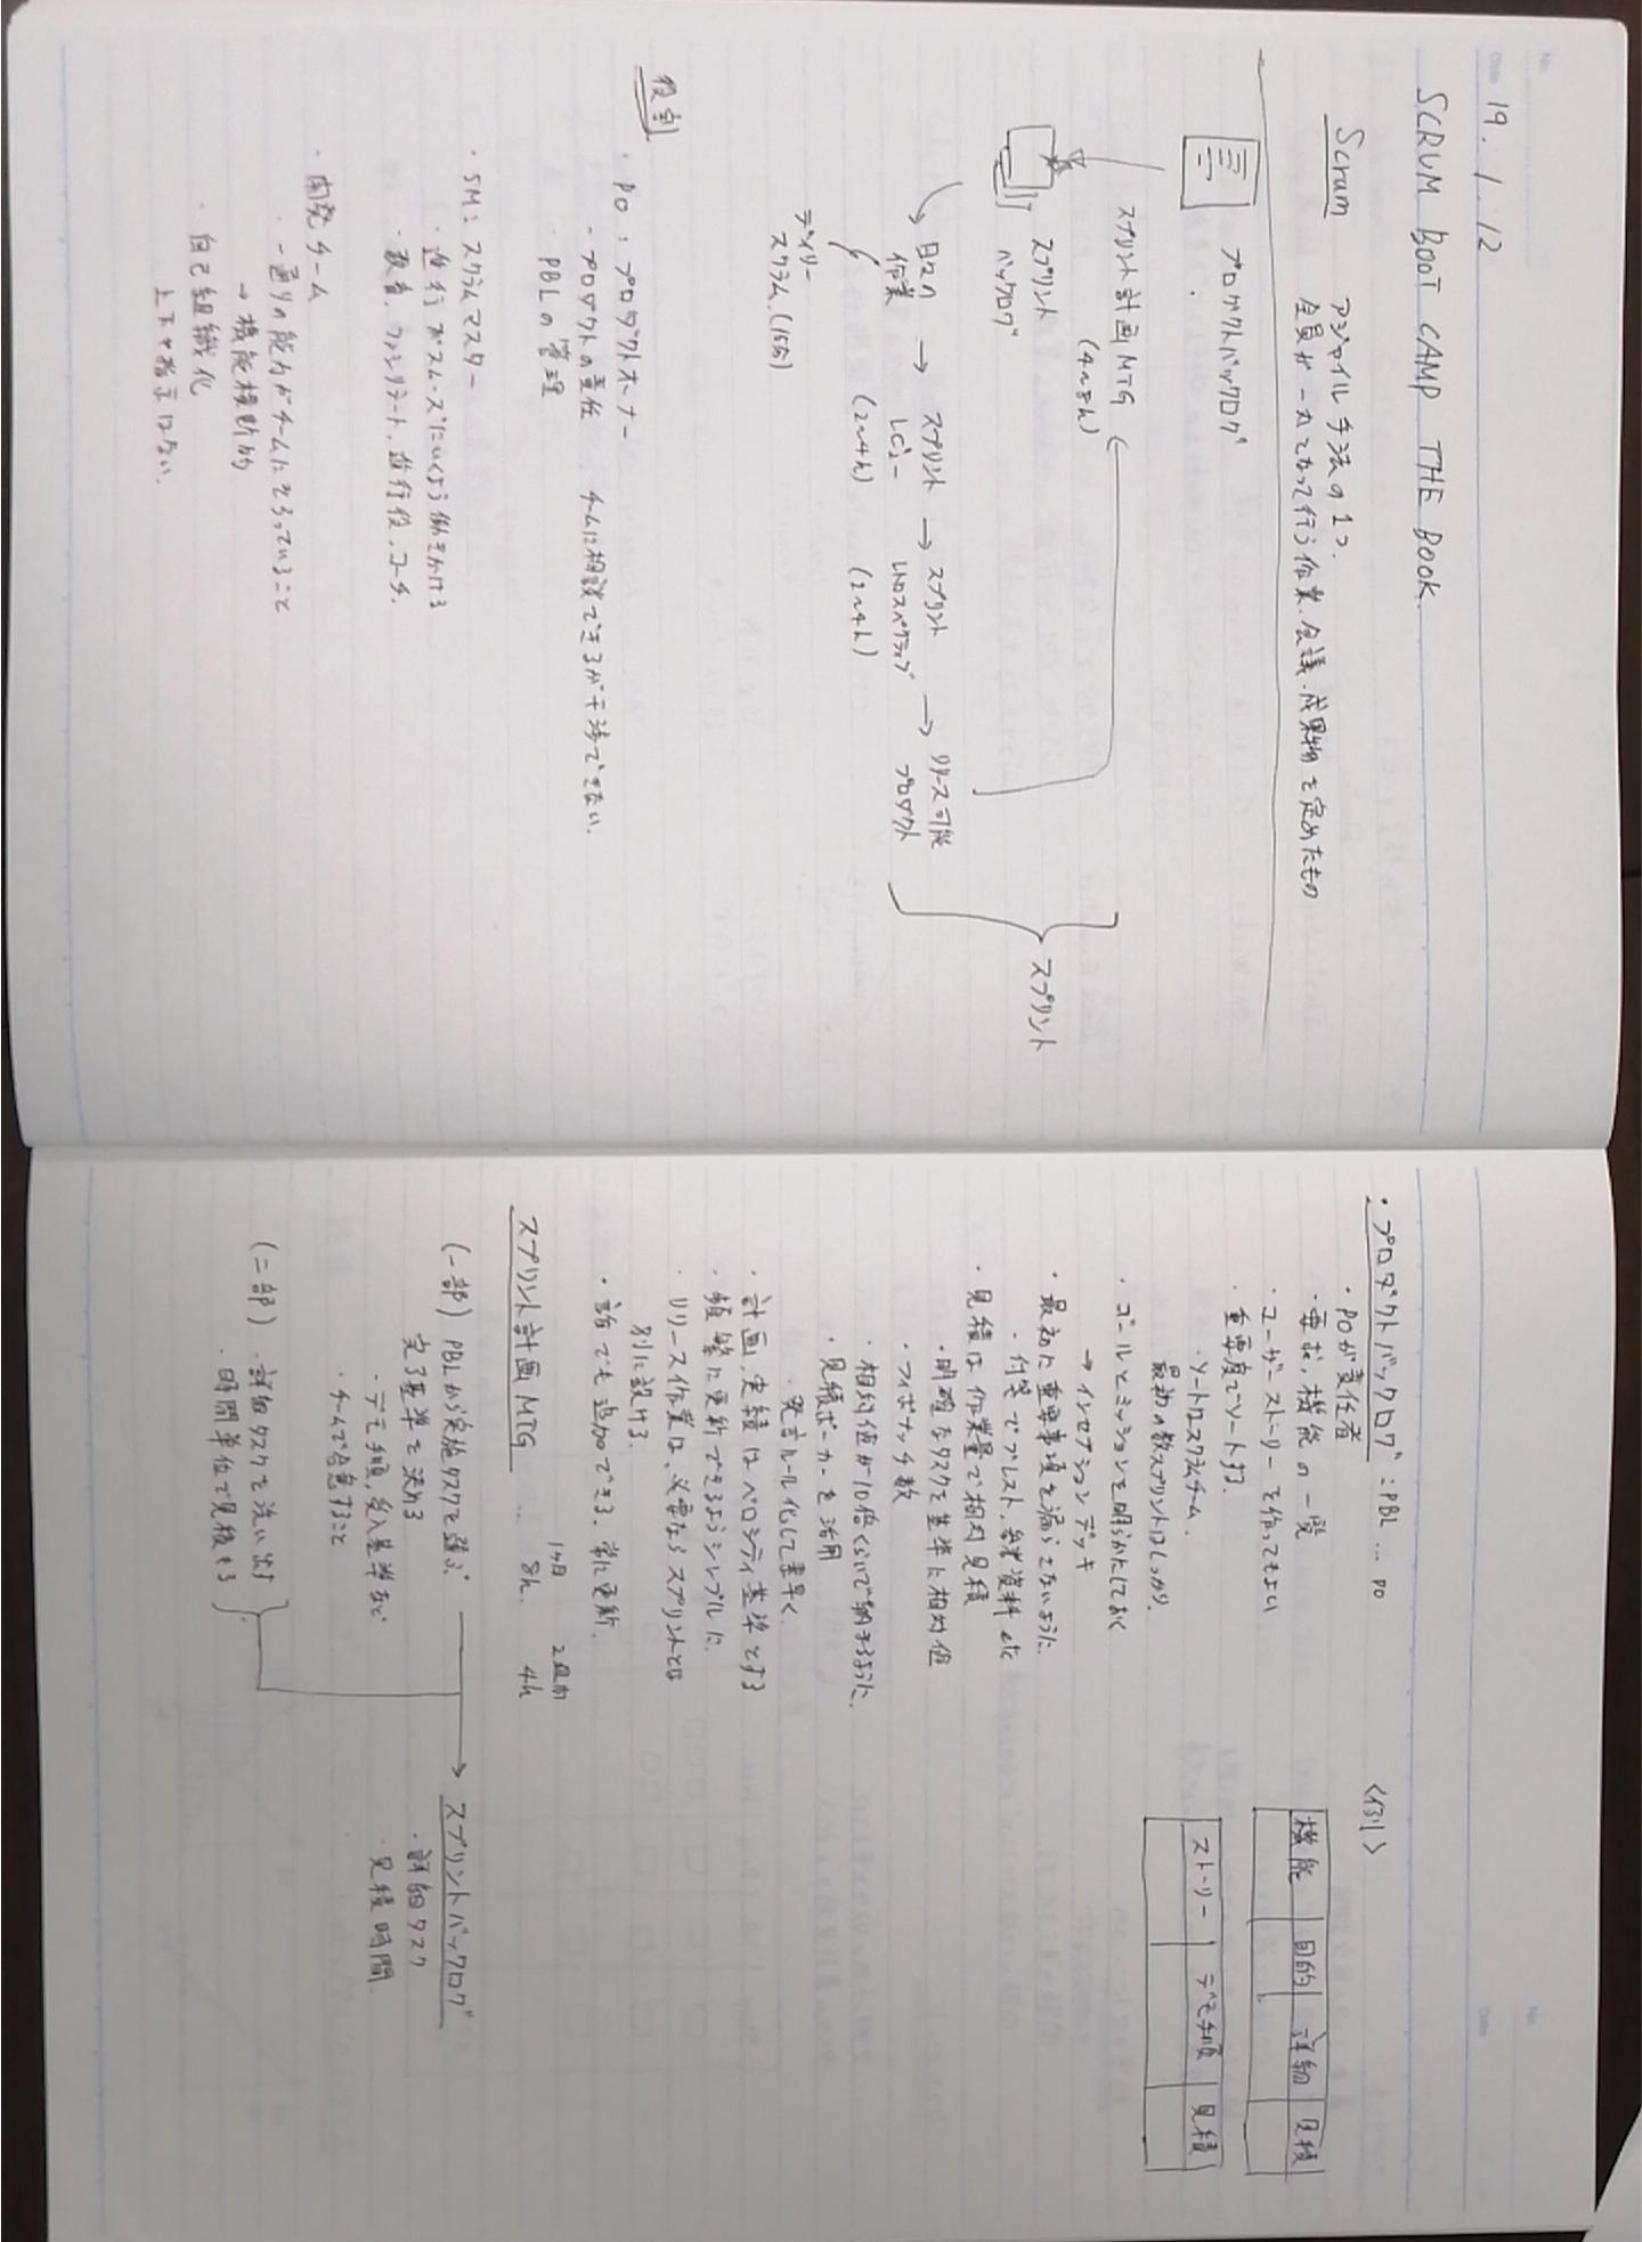 19. 1. 12
SCRUM BOOT CAMP THE BOOK.
Scrum
アジャイル手法の1つ.
全員が一丸となって行う作業.会議.成果物を定めたもの
プロダクトバックログ
スプリント計画MTG
(4~8h)
スプリント
バックログ
日々の
作業
→ スプリント
レビュー
(2~4h)
→ スプリント
レトロスペクティブ
(2~4h)
→ リリース可能
プロダクト
スプリント
デイリー
スクラム.(15分)
役割
・PO:プロダクトオーナー
- プロダクトの責任
チームに相談できるが干渉できない.
・PBLの管理
・SM:スクラムマスター
・進行がスムーズにいくよう働きかける
・教育.ファシリテート.進行役.コーチ.
・開発チーム
・一通りの能力がチームにそろっていること
→ 機能横断的
・自己組織化
上下や指示はない.
・プロダクトバックログ:PBL … PO
・POが責任者
・要求,機能の一覧
・ユーザーストーリーを作ってもよい
・重要度でソートする.
・ソートはスクラムチーム.
最初の数スプリントはしっかり.
・ゴールとミッションを明らかにしておく
→ インセプションデッキ
・最初に重要事項を漏らさないように.
・付箋でブレスト,参考資料etc
・見積は作業量で相対見積
・明確なタスクを基準に相対値
・フィボナッチ数
・相対値が10倍くらいで納まるように.
・見積ポーカーを活用
・発言ルール化して素早く.
・計画,実績はベロシティ基準とする
・頻繁に更新できるようシンプルに.
・リリース作業は、必要ならスプリントとは
別に設ける.
・誰でも追加できる.常に更新.
〈例〉
機能 目的 詳細 見積
ストーリー デモ手順 見積
スプリント計画MTG … 1ヶ月 8h. 2週間 4h
(一部) PBLから実施タスクを選ぶ. → スプリントバックログ
完了基準を決める
・詳細タスク
・デモ手順,受入基準など
・見積時間
・チームで合意すること
(二部)・詳細タスクを洗い出す
・時間単位で見積もる